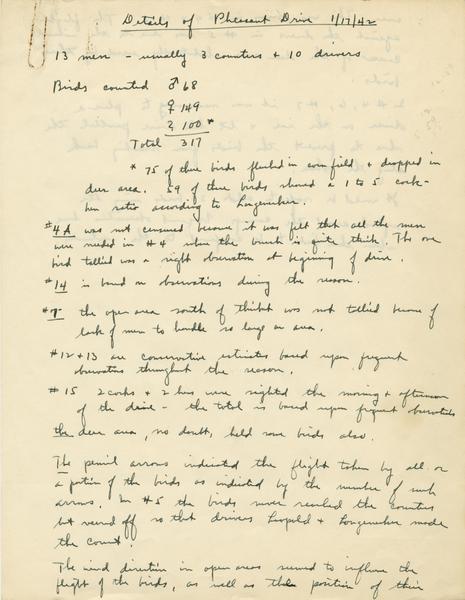 Details of Pheasant Drive 1/17/42
13 men - usually 3 counters + 10 drivers
Birds counted ♂ 68
♀ 149
? 100*
Total 317
* 75 of these birds flushed in corn field + dropped in
deer area. 59 of these birds showed a 1 to 5 cock-
hen ratio according to Longenecker.
#4A was not censused because it was felt that all the men
were needed in #4 where the brush is quite thick. The one
bird tallied was a sight observation at begining of drive.
#14 is based on observations during the season.
the open area south of thicket was not tallied because of
lack of men to handle so large an area.
#12 + 13 are conservative estimates based upon frequent
observations throughout the season.
#15 2 cocks + 2 hens were sighted the morning + afternoon
of the drive - the total is based upon frequent observations
the deer area, no doubt, held some birds also.
The pencil arrows indicated the flight taken by all or
a portion of the birds as indicated by the number of such
arrows. In #5 the birds never reached the counters
but veered off so that drivers Leopold + Longenecker made
the count.
The wind direction in open areas seemed to influence the
flight of the birds, as well as the position of their